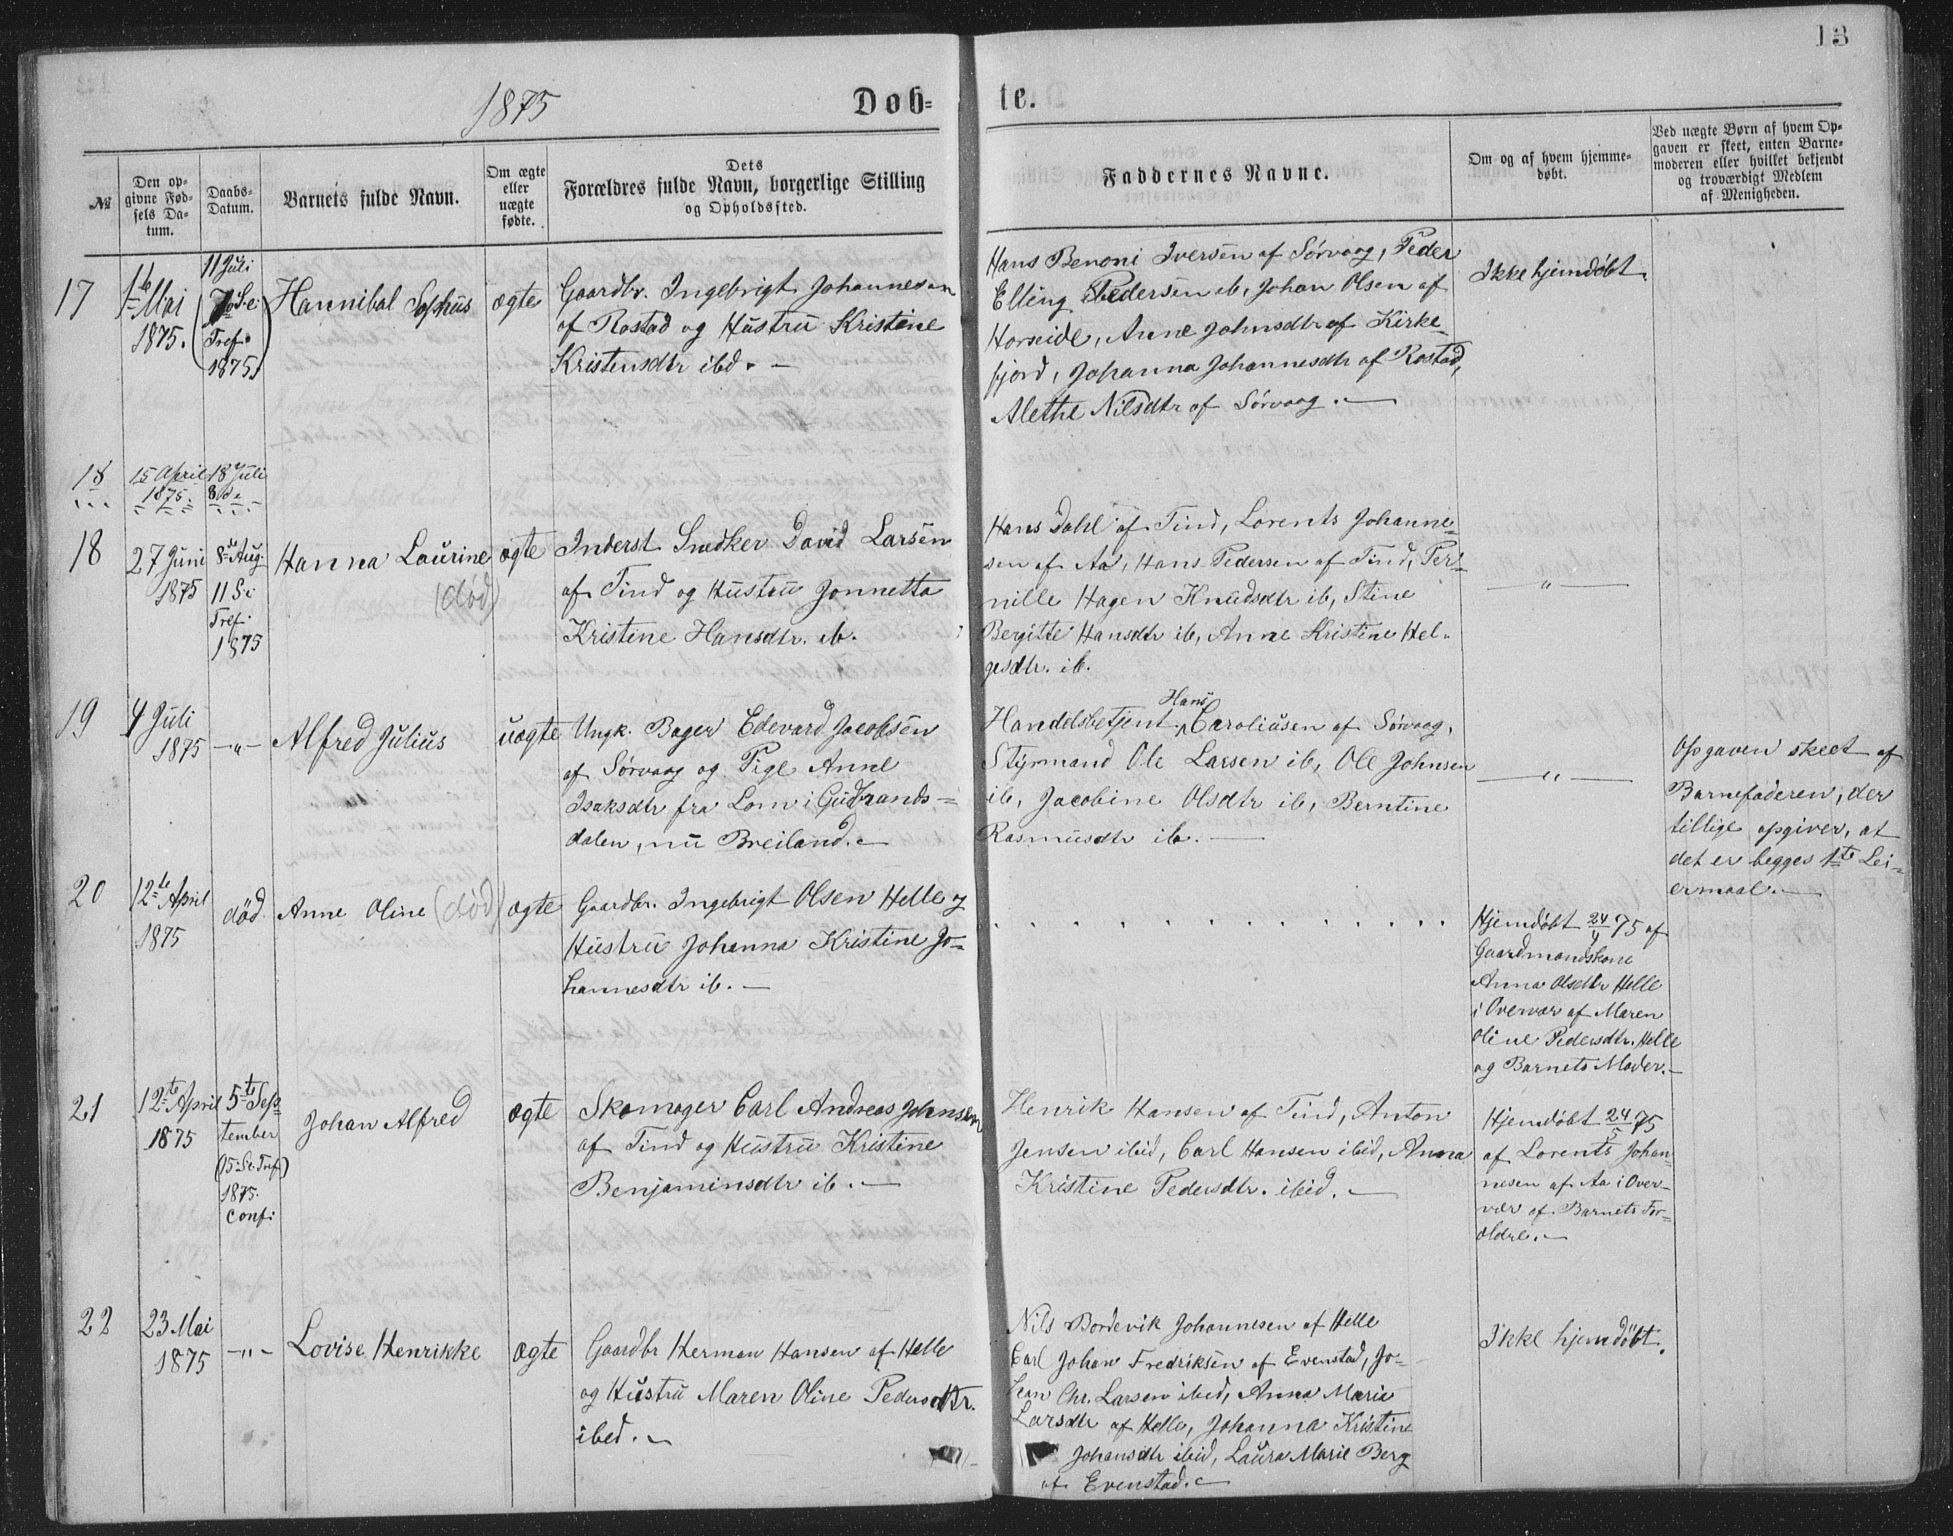 13
1875
Døb-
te.
№
Den op-
givne Fød-
sels Da-
tum.
Daabs-
Datum.
Barnets fulde Navn.
Om ægte
eller
uægte
fødte.
Dets
Forældres fulde Navn, borgerlige Stilling
og Opholdssted.
Faddernes Navne.
Om og af hvem hjemme-
døbt.
Ved uægte Børn af hvem Op-
gaven er skeet, enten Barne-
moderen eller hvilket bekjendt
og troværdigt Medlem
af Menigheden.
17
1te
Mai
1875.
11 Juli
(7de S. e.
Tref.
1875.)
Hannibal Sophus
ægte
Gaardbr. Ingebrigt Johannesen
af Rostad og Hustru Kristine
Kristensdtr ibd. —
Hans Benoni Iversen af Sørvaag, Peder
Elling Pedersen ib, Johan Olsen af
Horseide, Anne Johnsdtr af Kirke-
fjord, Johanna Johannesdtr af Rostad,
Alethe Nilsdtr af Sørvaag. —
Ikke hjemdøbt.
18
15 April
1875.
18 Juli
18
27 Juni
1875
8de Aug.
11 S. e.
Tref.
1875
Hanna Laurine
(død)
ægte
Inderst Snedker David Larsen
af Tind og Hustru Jonnetta
Kristine Hansdtr. ib.
Hans Dahl af Tind, Lorents Johanne-
sen af Aa, Hans Pedersen af Tind, Per-
nille Hagen Knudsdtr ib, Stine
Bergitte Hansdtr ib, Anne Kristine Hel-
gesdtr. ib.
— " —
19
4 Juli
1875
— " —
Alfred Julius
uægte
Ungk. Bager Edevard Jacobsen
af Sørvaag og Pige Anne
Isaksdtr fra Lom i Gudbrands-
dalen, nu Breiland. —
Hans
Handelsbetjent Caroliusen af Sørvaag,
Styrmand Ole Larsen ib, Ole Johnsen
ib, Jacobine Olsdtr ib, Berntine
Rasmusdtr ib. —
— " —
Opgaven skeet af
Barnefaderen, der
tillige opgiver, at
det er begges 1te Lei-
ermaal. —
20
12te April
1875
død
Anne Oline (død)
ægte
Gaardbr. Ingebrigt Olsen Helle og
Hustru Johanna Kristine Jo-
hannesdtr ib. —
Hjemdøbt 24/4 75 af
Gaardmandskone
Anna Olsdtr Helle
i Overvær af Maren
Oline Pedersdtr. Helle
og Barnets Moder. —
21
12te April
1875
5te Sep-
tember
(15 S. e. Tref.)
1875.
Conf:
Johan Alfred
ægte
Skomager Carl Andreas Johnsen
af Tind og Hustru Kristine
Benjaminsdtr ib. —
Henrik Hansen af Tind, Anton
Jensen ibid, Carl Hansen ibid, Anna
Kristine Pedersdtr. ibid. —
Hjemdøbt 24/5 75
af Lorents Johan-
nesen af Aa i Over-
vær af Barnets For-
ældre. —
22
23 Mai
1875
— " —
Lovise Henrikke
ægte
Gaardbr Herman Hansen af Helle
og Hustru Maren Oline Pedersdtr.
ibid. —
Nils Bordevik Johannesen af Helle
Carl Johan Fredriksen af Evenstad, Jo-
han Chr. Larsen ibid, Anna Marie
Larsdtr af Helle, Johanna Kristine
Johansdtr ibid, Laura Marie Berg
af Evenstad. —
Ikke hjemdøbt.